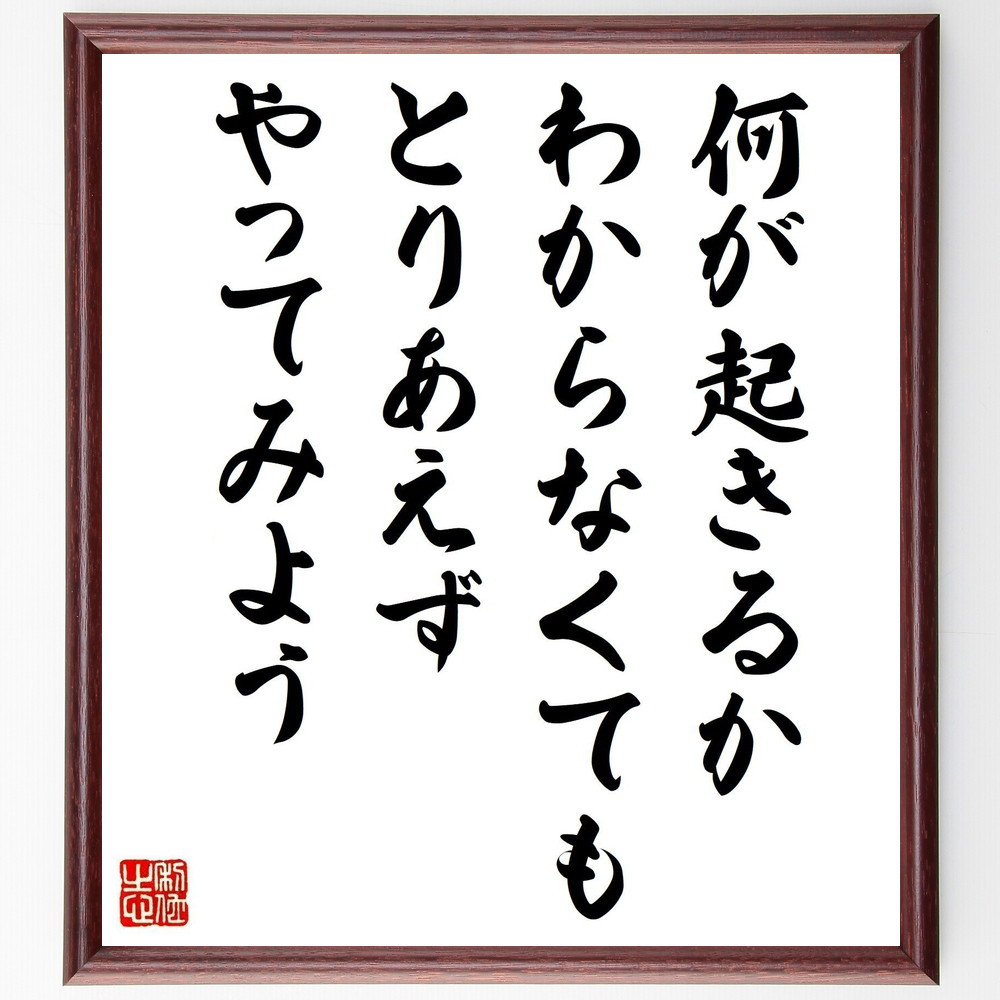 何が起きるか
わからなくても
とりあえず
やってみよう